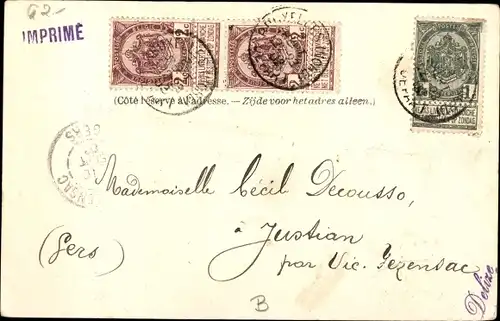 62-
IMPRIMÉ
2 2
1
(Côté réservé à l'adresse. — Zijde voor het adres alleen.)
GERS
Mademoiselle Cécil Decousso,
à Justian
par Vic. Fezensac
(Gers)
B